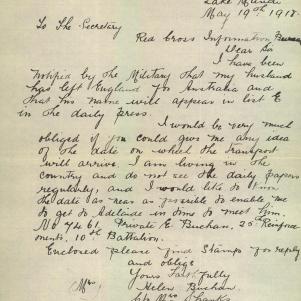 Lake
May 19th 1918
To The Secretary
Red Cross Information Bureau
Dear Sir
I have been
notified by the Military that my husband
has left England for Australia and
that his name will appear in list E
in the daily press.
I would be very much
obliged if you could give me any idea
of the date on which the transport
will arrive. I am living in the
country and do not see the daily papers
regularly, and I would like to know
the date as near as possible to enable me
to get to Adelaide in time to meet him.
No 7461. Private E. Buchan. 25th Reinforce
ments, 10th Battalion.
Enclosed please find Stamps for reply
and oblige
Yours Faithfully
(Mrs) Helen Buchan.
c/o Mrs Shanks